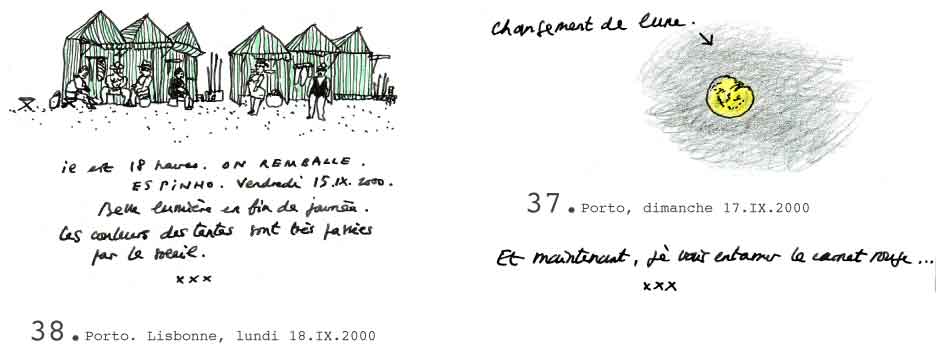 il est 18 heures. ON REMBALLE.
ESPINHO. Vendredi 15.IX.2000.
Belle lumière en fin de journée.
Les couleurs des tentes sont très passées
par le soleil.
xxx
38. Porto. Lisbonne, lundi 18.IX.2000
changement de lune.
37. Porto, dimanche 17.IX.2000
Et maintenant, je vais entamer le carnet rouge...
xxx